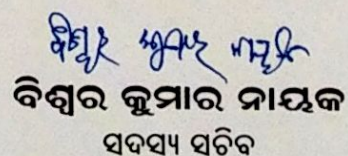 ବିଶ୍ୱର କୁମାର ନାୟକ
ସଦସ୍ୟ ସଚିବ